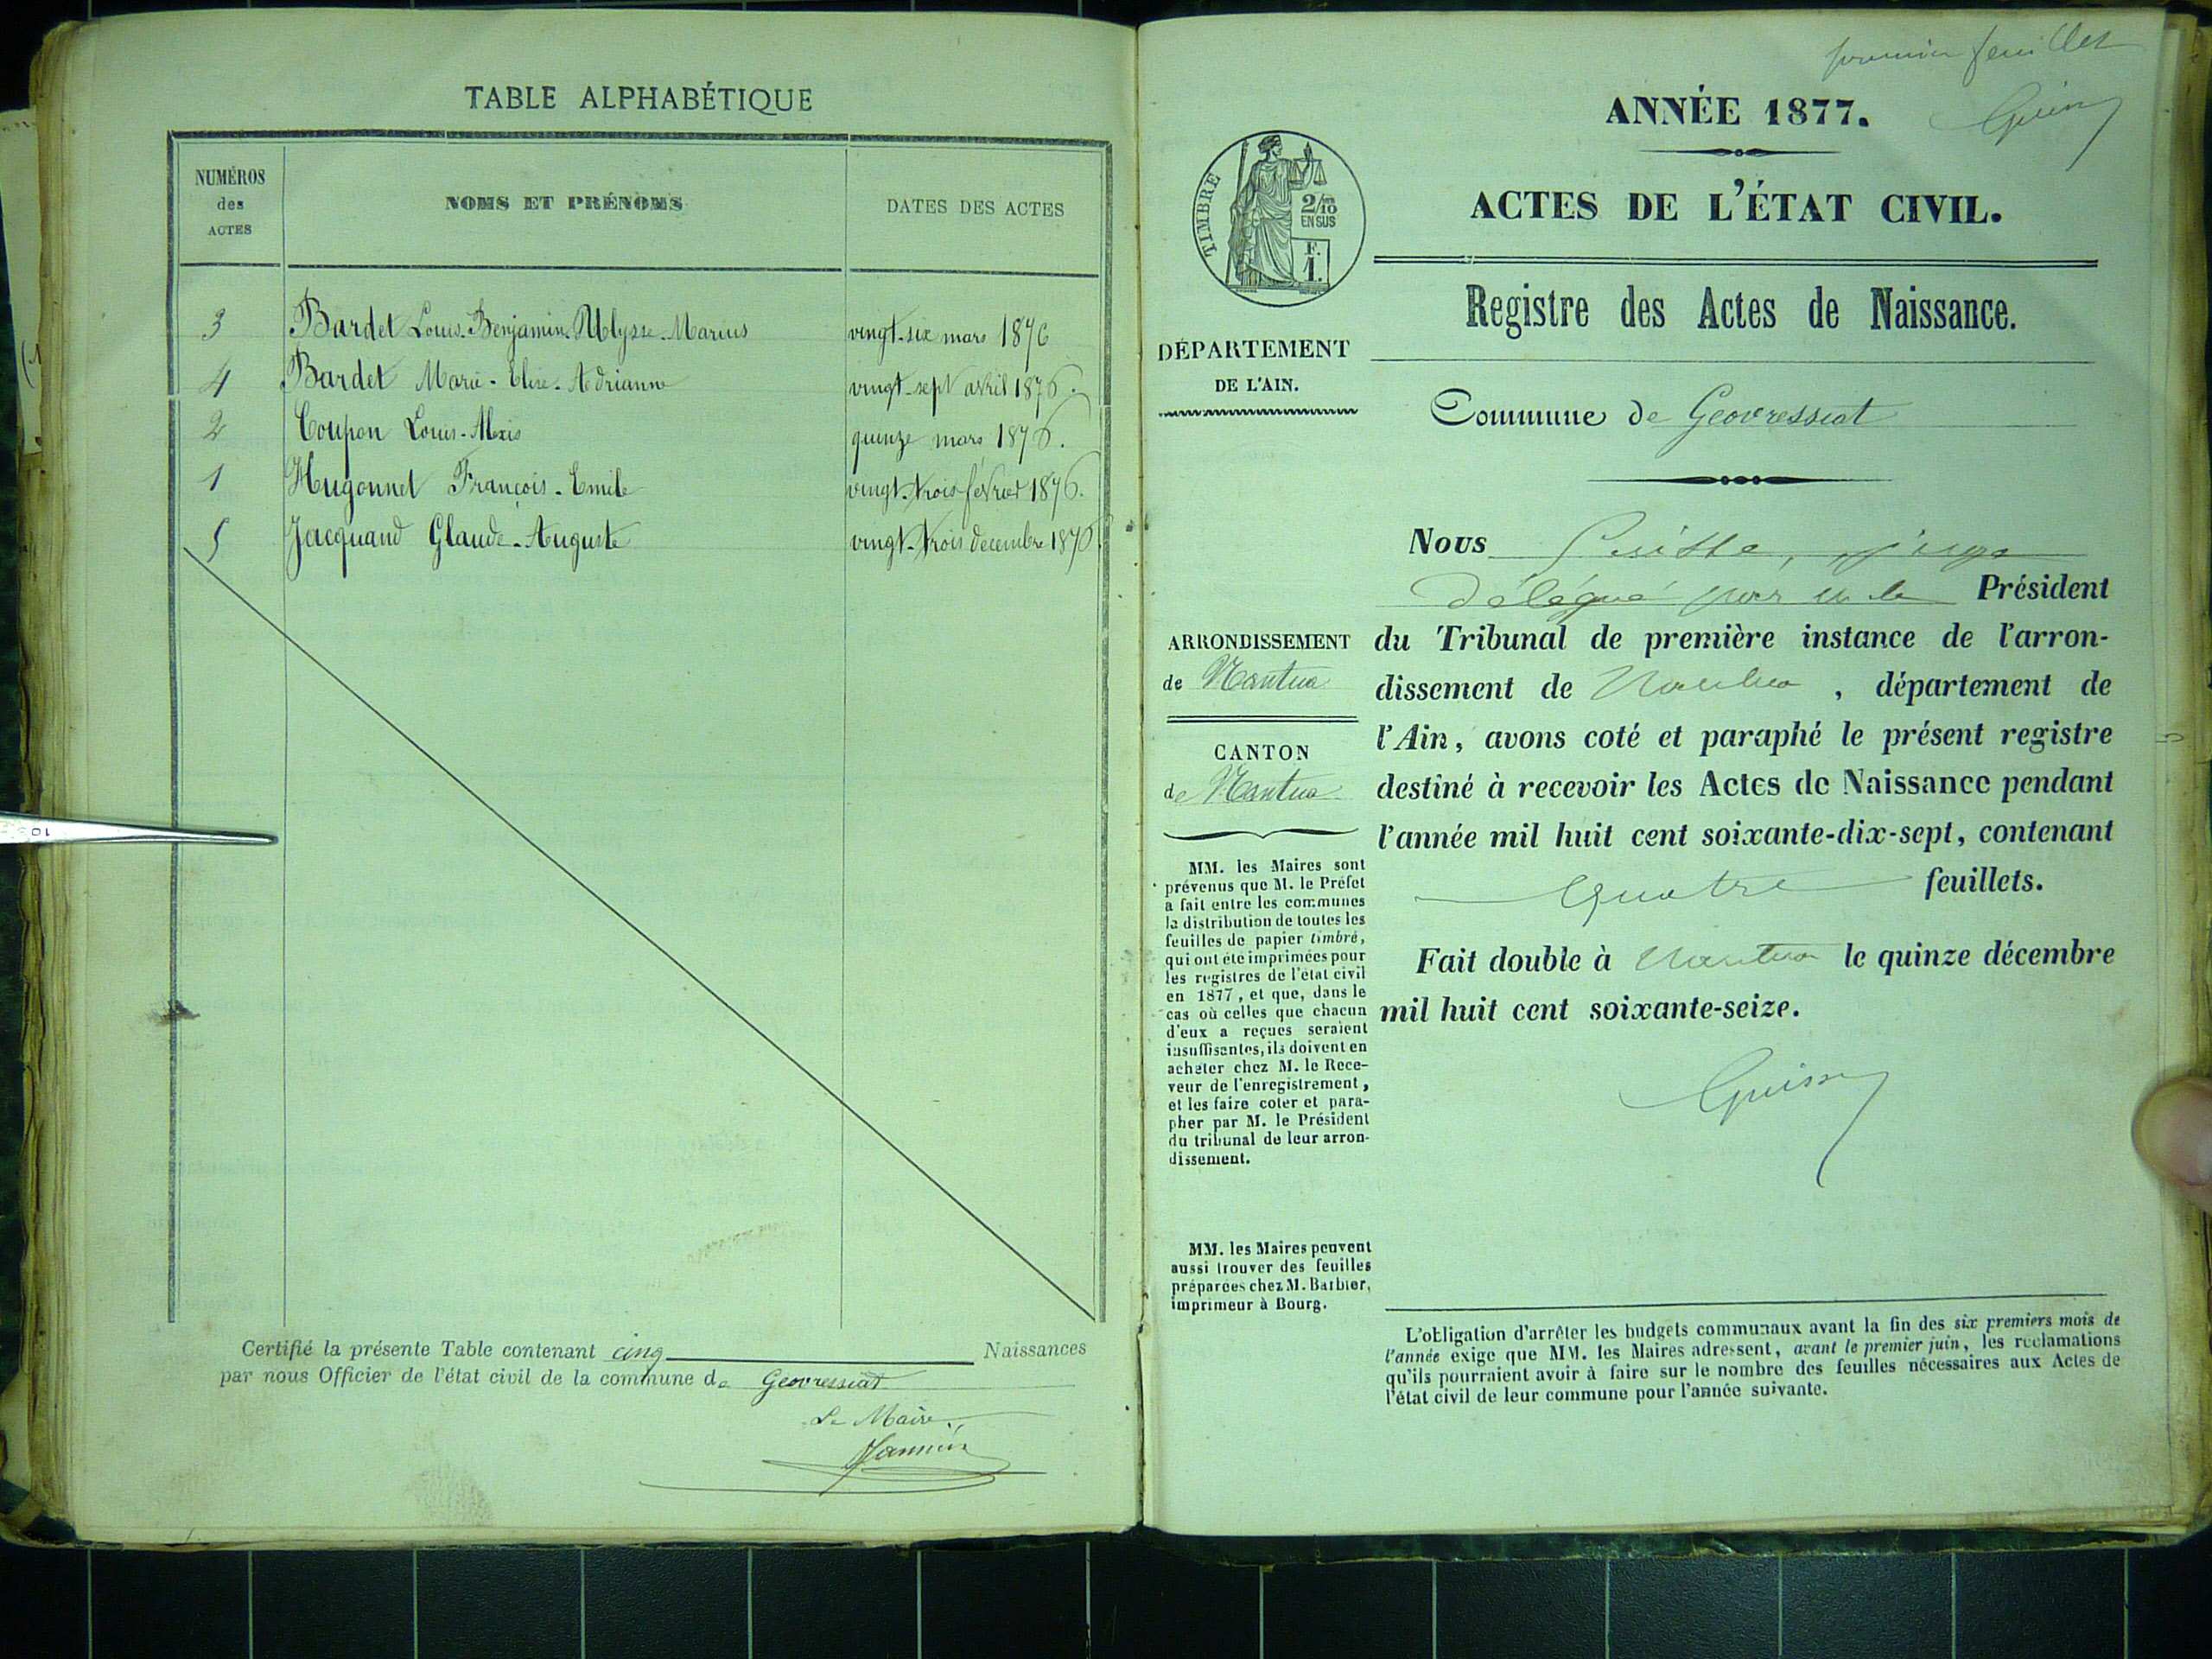 TABLE ALPHABÉTIQUE
NUMÉROS
des
ACTES
NOMS ET PRÉNOMS
DATES DES ACTES
3 Bardet Louis-Benjamin-Ulysse-Marius vingt-six mars 1876
4 Bardet Marie-Elise-Adrianne vingt-sept avril 1876.
2 Coupon Louis-Alexis quinze mars 1876.
1 Hugonnet François-Emile vingt-trois février 1876.
5 Jacquand Glaude-Auguste vingt-trois decembre 1876.
Certifié la présente Table contenant cinq Naissances
par nous Officier de l'état civil de la commune de Geovressiat
Le Maire,
premier feuillet
ANNÉE 1877.
ACTES DE L'ÉTAT CIVIL.
TIMBRE
2/10
EN SUS
F.
1.
Registre des Actes de Naissance.
DÉPARTEMENT
DE L'AIN.
Commune de Geovressiat
Nous juge
délégué par M. le Président
ARRONDISSEMENT
de Nantua
CANTON
de Nantua
du Tribunal de première instance de l'arron-
dissement de Nantua, département de
l'Ain, avons coté et paraphé le présent registre
destiné à recevoir les Actes de Naissance pendant
l'année mil huit cent soixante-dix-sept, contenant
Quatre feuillets.
Fait double à Nantua le quinze décembre
mil huit cent soixante-seize.
MM. les Maires sont
prévenus que M. le Préfet
a fait entre les communes
la distribution de toutes les
feuilles de papier timbré,
qui ont été imprimées pour
les registres de l'état civil
en 1877, et que, dans le
cas où celles que chacun
d'eux a reçues seraient
insuffisantes, ils doivent en
acheter chez M. le Rece-
veur de l'enregistrement,
et les faire coter et para-
pher par M. le Président
du tribunal de leur arron-
dissement.
MM. les Maires peuvent
aussi trouver des feuilles
préparées chez M. Barbier,
imprimeur à Bourg.
L'obligation d'arrêter les budgets communaux avant la fin des six premiers mois de
l'année exige que MM. les Maires adressent, avant le premier juin, les réclamations
qu'ils pourraient avoir à faire sur le nombre des feuilles nécessaires aux Actes de
l'état civil de leur commune pour l'année suivante.